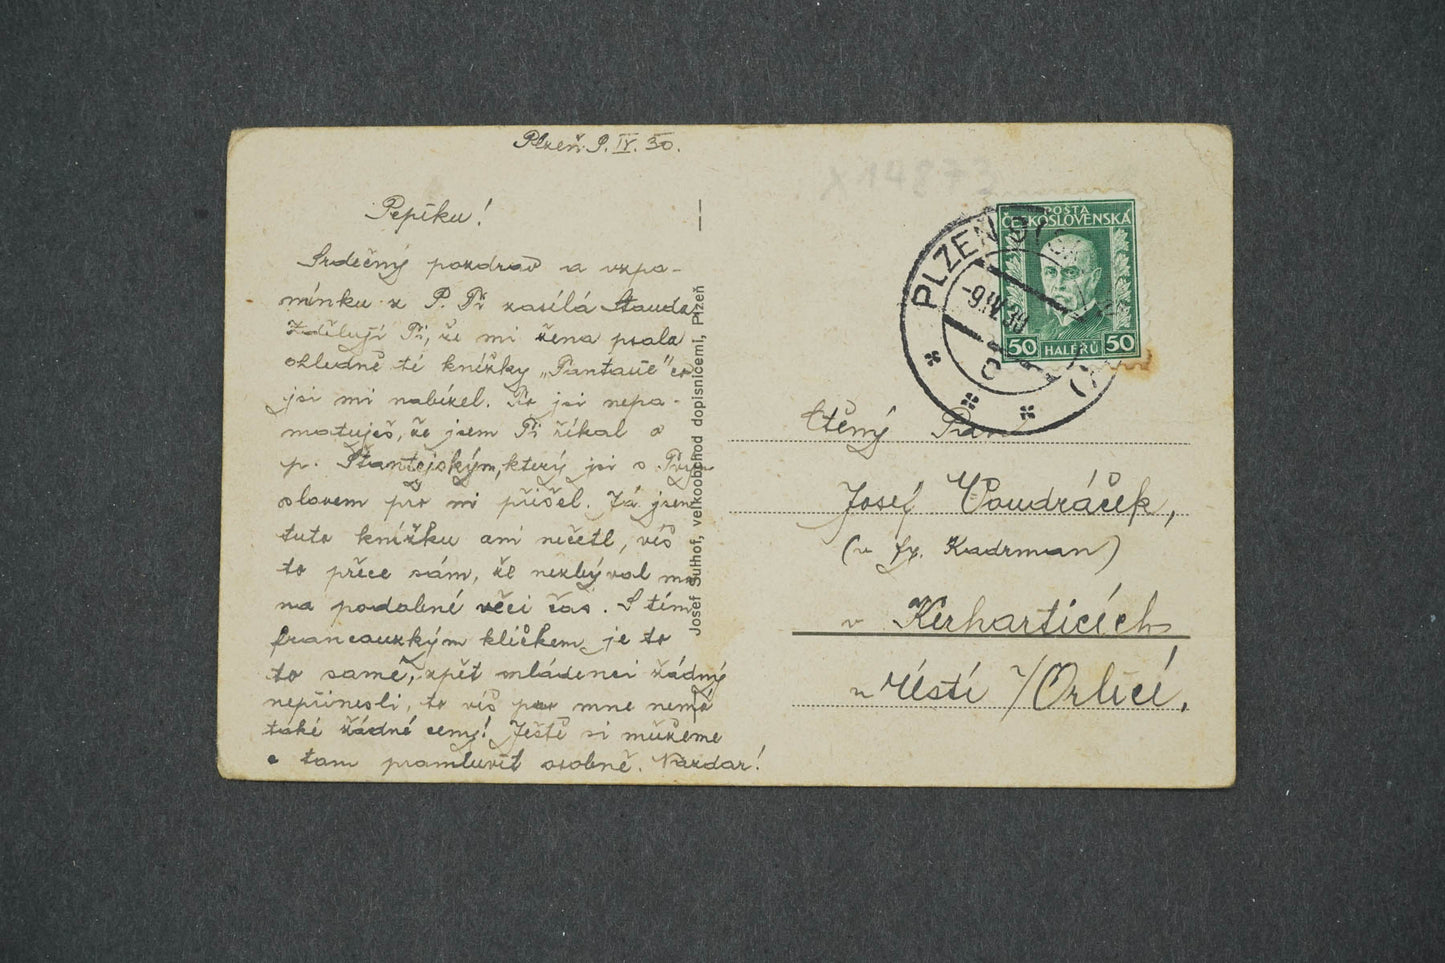 Plzeň 9. IV. 30.
Pepíku!
Srdečný pozdrav a vzpo-
mínku z P. Ti zasílá Standa
Zděluji Ti, že mi žena psala
ohledně té knížky „Tantaüe" co
jsi mi nabízel. To jsi nepa-
matuješ, že jsem Ti říkal o
p. Štantejským, který jsi s Pry-
slovem pro mi přišel. Já jsem
tuto knížku ani nečetl, víš
to přece sám, že nezbýval mě
na podobné věci čas. S tím
francouzkým klíčkem je to
to samé, zpět mládenci žádný
nepřinesli, to víš pro mne nemá
také žádné ceny! Ještě si můžeme
o tom promluvit osobně. Nazdar!
Josef Sulhof, velkoobchod dopisnicemi, Plzeň
X 14873
POŠTA
ČESKOSLOVENSKÁ
50 HALÉŘŮ 50
PLZEŇ
-9.IV.30
Ctěný Pan
Josef Voudráček,
(u fy. Kadrman)
v Kerharticích
u Ústí /Orlicí.